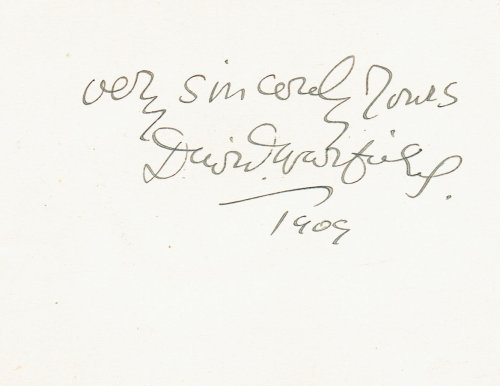 very sincerely yours
David Warfield.
1909